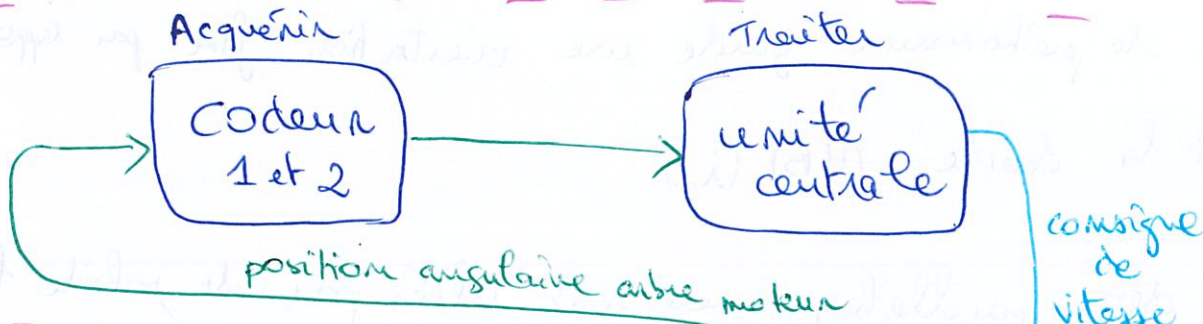 Acquérir
Traiter
Codeur
1 et 2
unité
centrale
consigne
de
vitesse
position angulaire arbre moteur